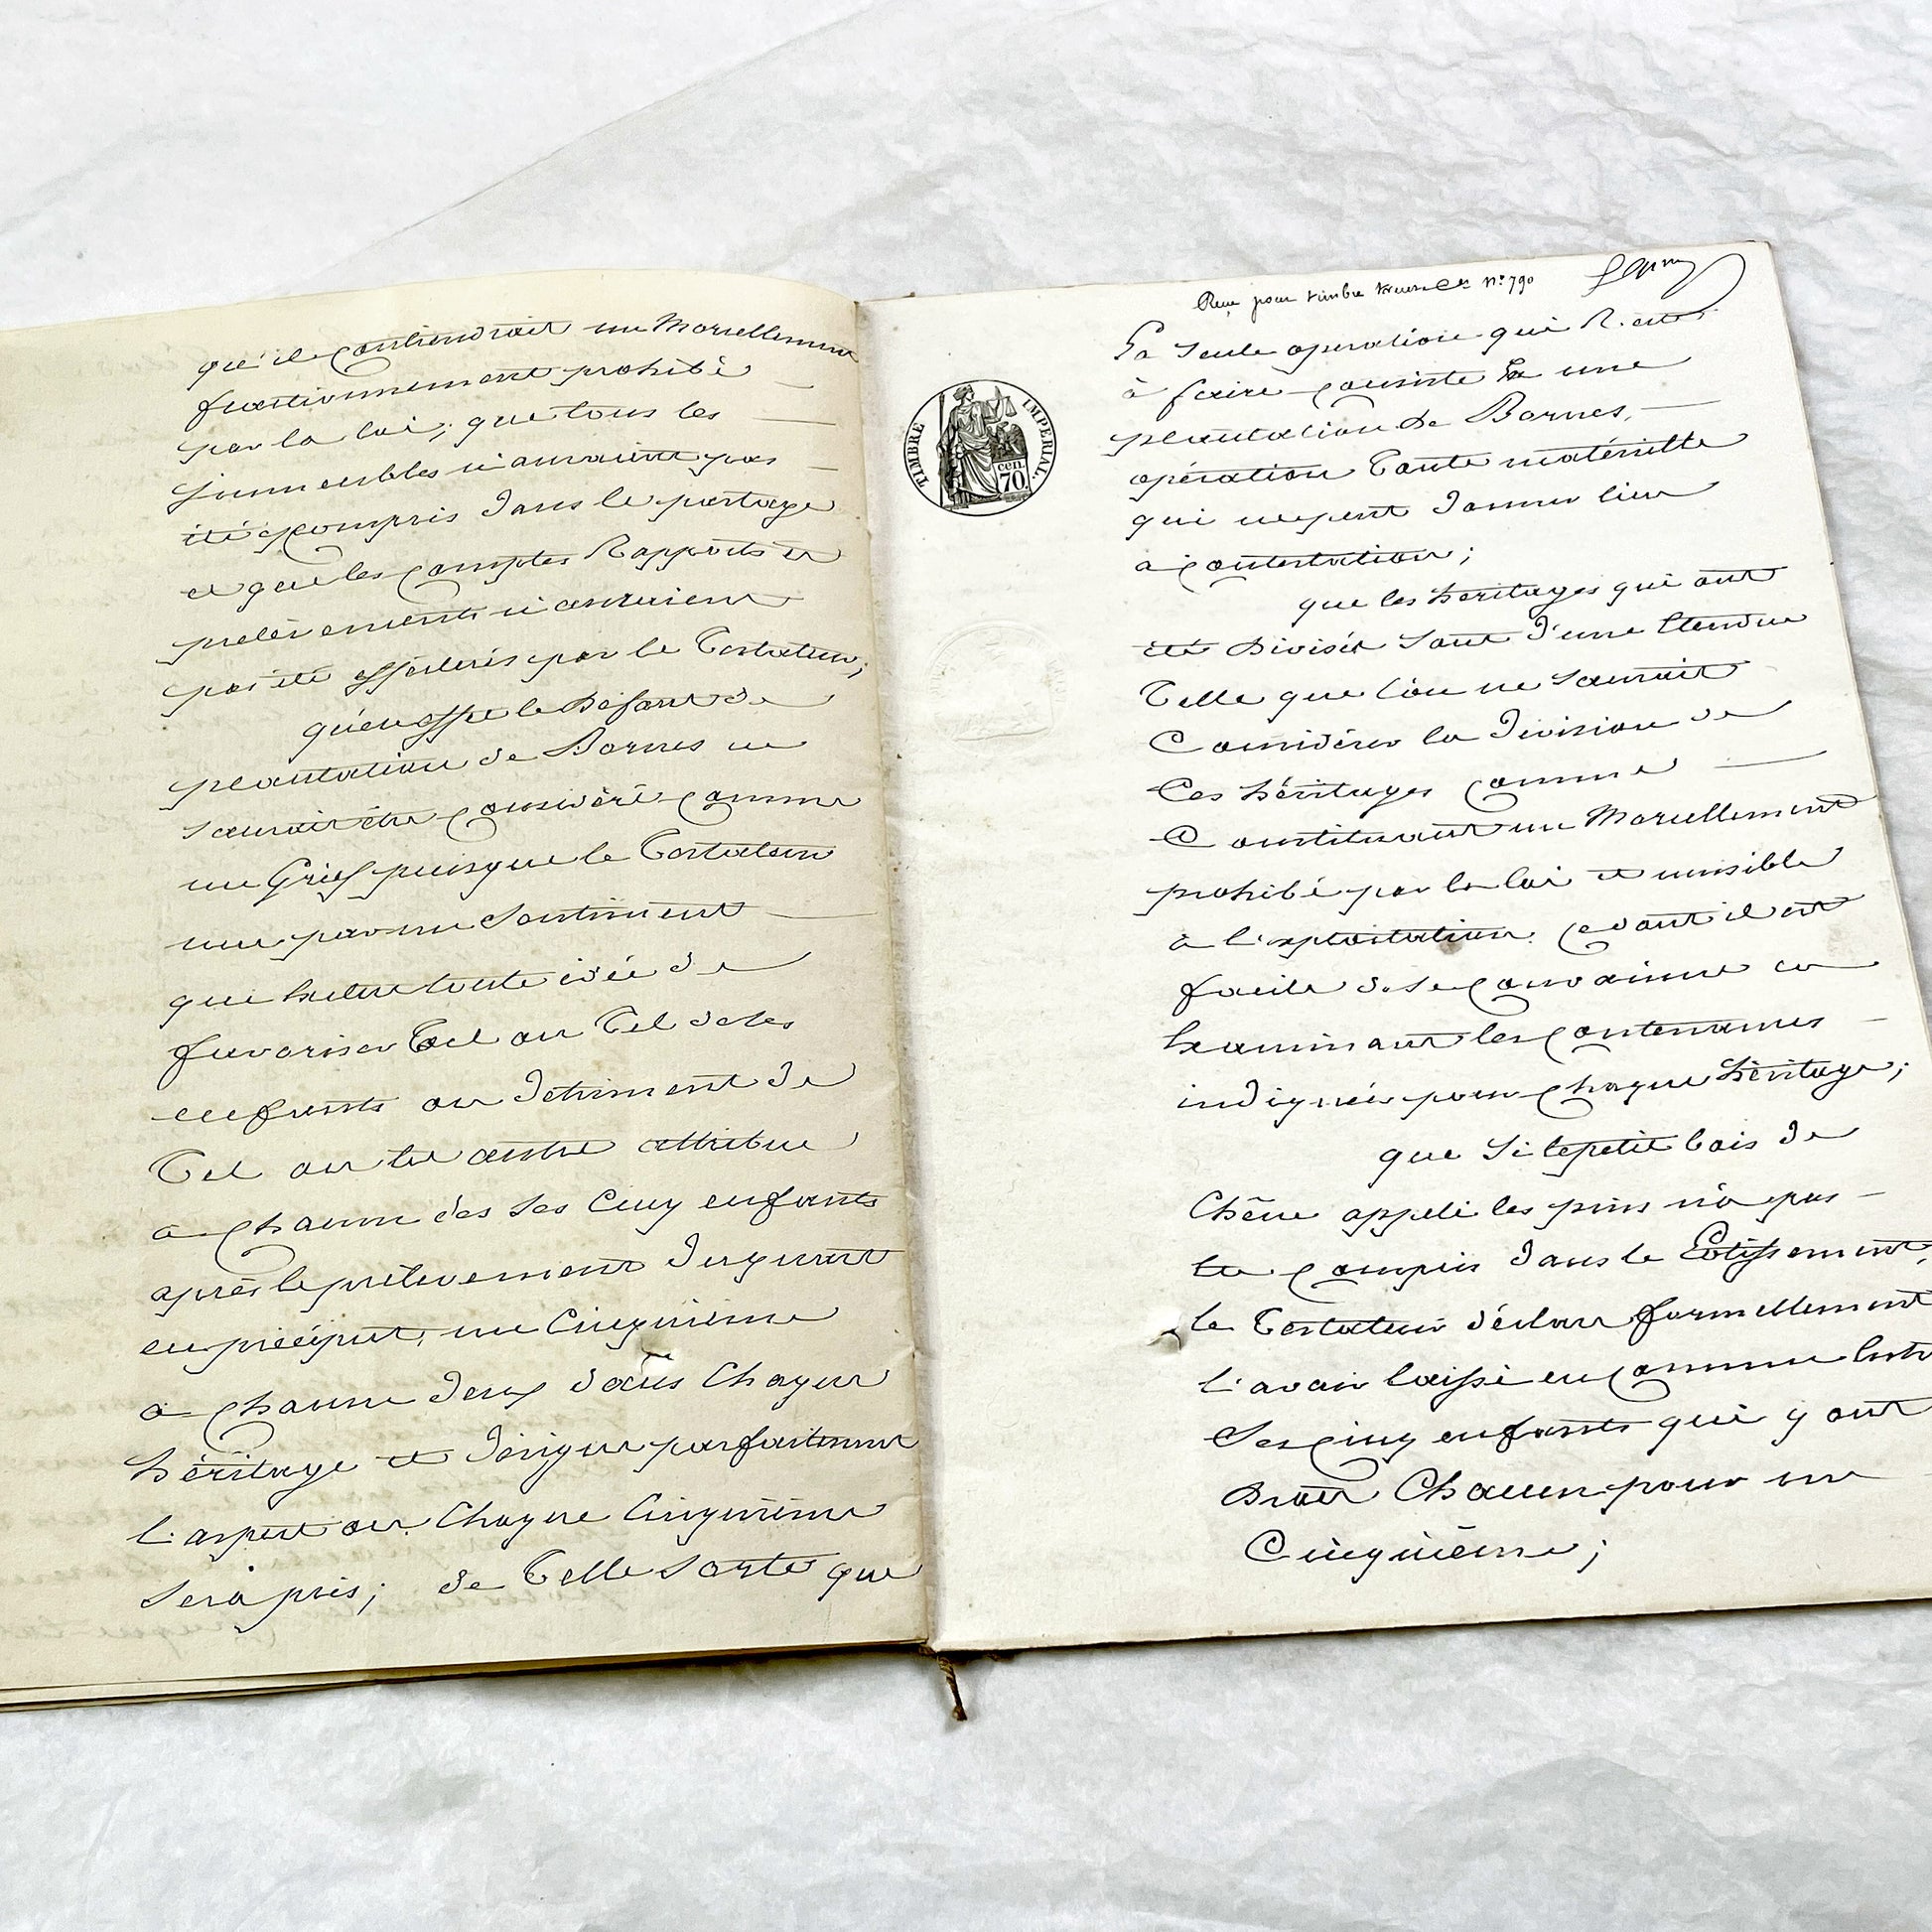 qu'il contiendrait un Morcellement
fractionnement prohibé
par la loi; que tous les
immeubles n'auraient pas
été compris dans le partage
et que les comptes Rapports et
prélèvements n'auraient
pas été effectués par le Testateur;
qu'en effet le défaut de
plantation de Bornes ne
saurait être considéré comme
un Grief puisque le Testateur
mu par un Sentiment
que exclut toute idée de
favoriser Tel ou Tel de ses
enfants au détriment de
Tel ou tel autre attribue
à chacun des ses Cinq enfants
après le prélèvement du quart
en préciput, un Cinquième
à chacun deux dans Chaque
héritage et désigne parfaitement
l'aspect ou Chaque Cinquième
sera pris; de Telle sorte que
TIMBRE IMPERIAL
cen.
70.
Reçu pour timbre N° 790
La seule opération qui Reste
à faire consiste en une
plantation de Bornes,
opération Toute matérielle
qui ne peut donner lieu
à contestation;
que les héritages qui ont
été Divisés sont d'une Etendue
Telle que l'on ne saurait
Considérer la Division de
Ces héritages comme
Constituant un Morcellement
prohibé par la loi et nuisible
à l'exploitation ce dont il est
facile de se convaincre en
Examinant les contenances
indiquées pour chaque héritage;
que si le petit bois de
Chêne appelé les pins n'a pas
été compris dans le Lotissement,
le Testateur déclare formellement
l'avoir laissé en commun Entre
Ses cinq enfants qui y ont
Droit Chacun pour un
Cinquième;